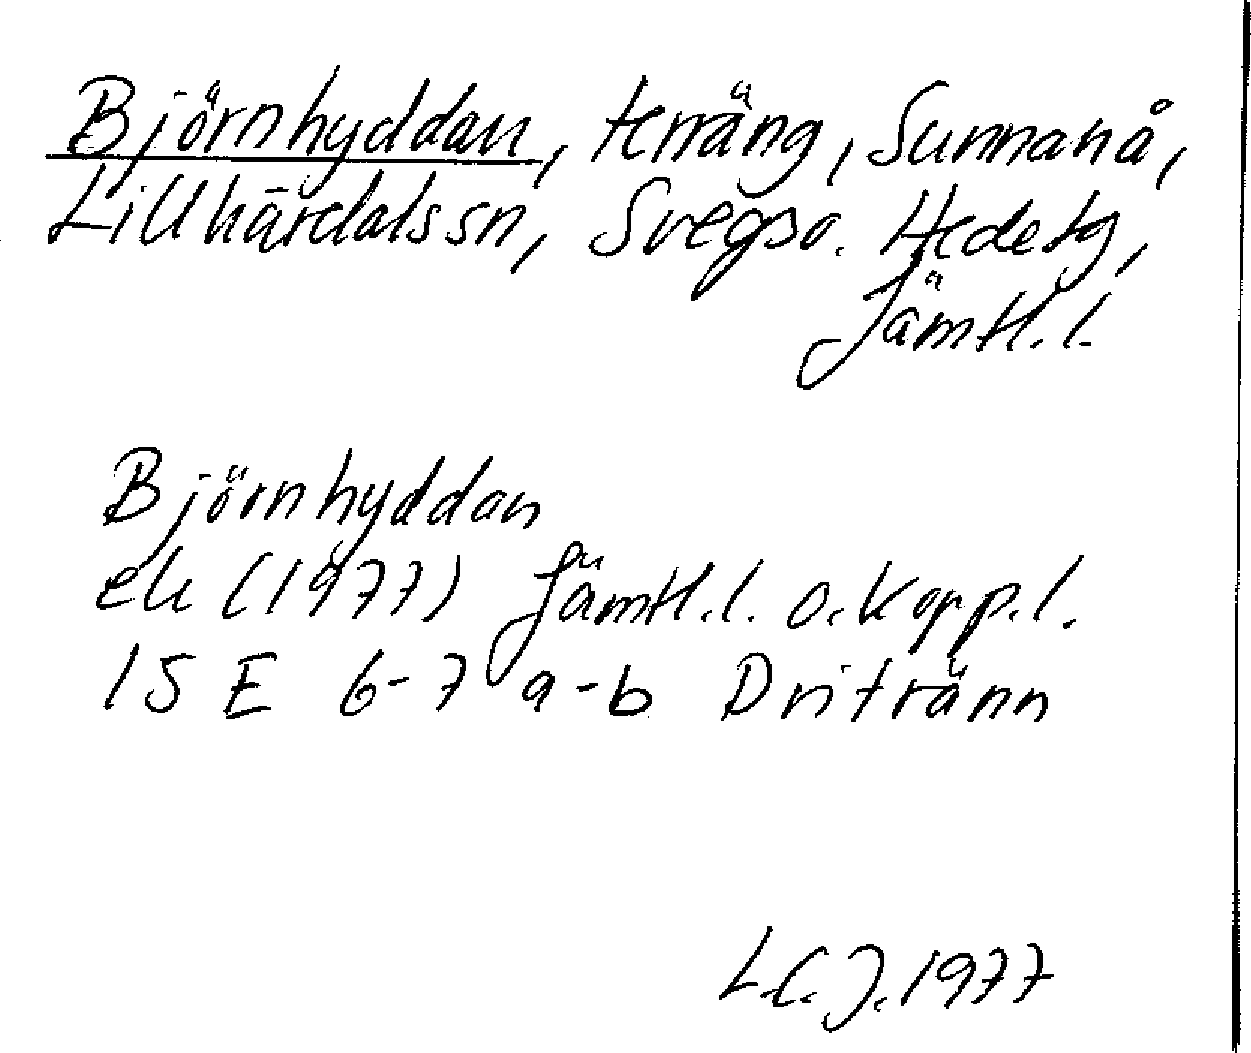 Björnhyddan, terräng, Sunnanå,
Lillhärdalssn, Svegso. Hedetg,
Jämtl.l.
Björnhyddan
ek (1977) Jämtl.l. o. Kopp.l.
15 E 6-7 a-b Dritränn
L.C.J. 1977